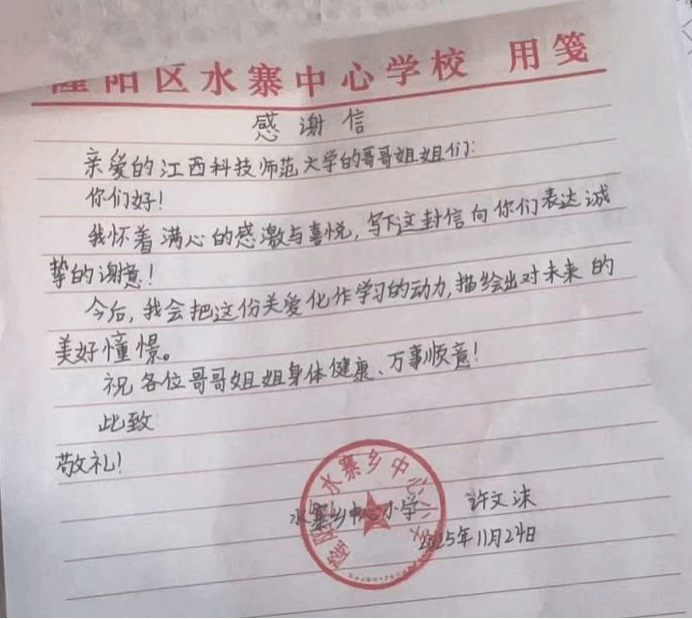 隆阳区水寨中心学校 用笺
感谢信
亲爱的江西科技师范大学的哥哥姐姐们:
你们好!
我怀着满心的感激与喜悦,写下这封信向你们表达诚
挚的谢意!
今后,我会把这份关爱化作学习的动力,描绘出对未来的
美好憧憬。
祝各位哥哥姐姐身体健康、万事顺意!
此致
敬礼!
隆阳区水寨乡中心小学
水寨乡中心小学 许文沫
2025年11月24日